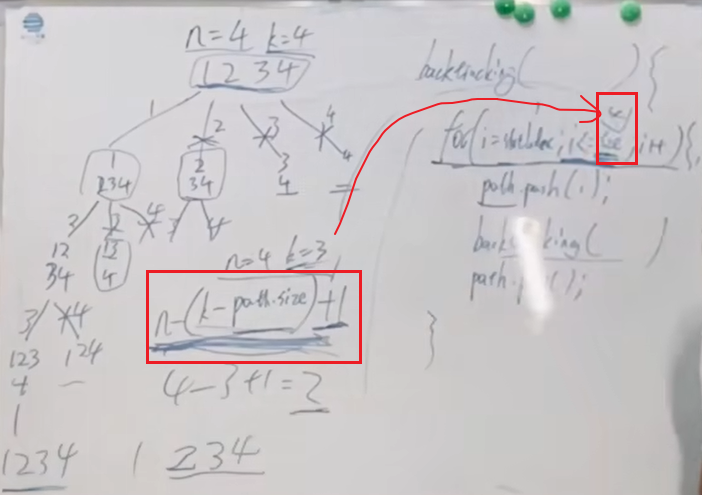 n=4 k=4
1 2 3 4
1
2
3
4
1
234
2
34
3
4
4
2
3
4
3
4
12
34
13
4
3
4
123
4
124
1
1234
1 234
n=4 k=3
n-(k-path.size)+1
4-3+1=2
backtracking( ) {
for(i=startIndex; i<= ; i++) {
path.push(i);
backtracking( )
path.pop();
}